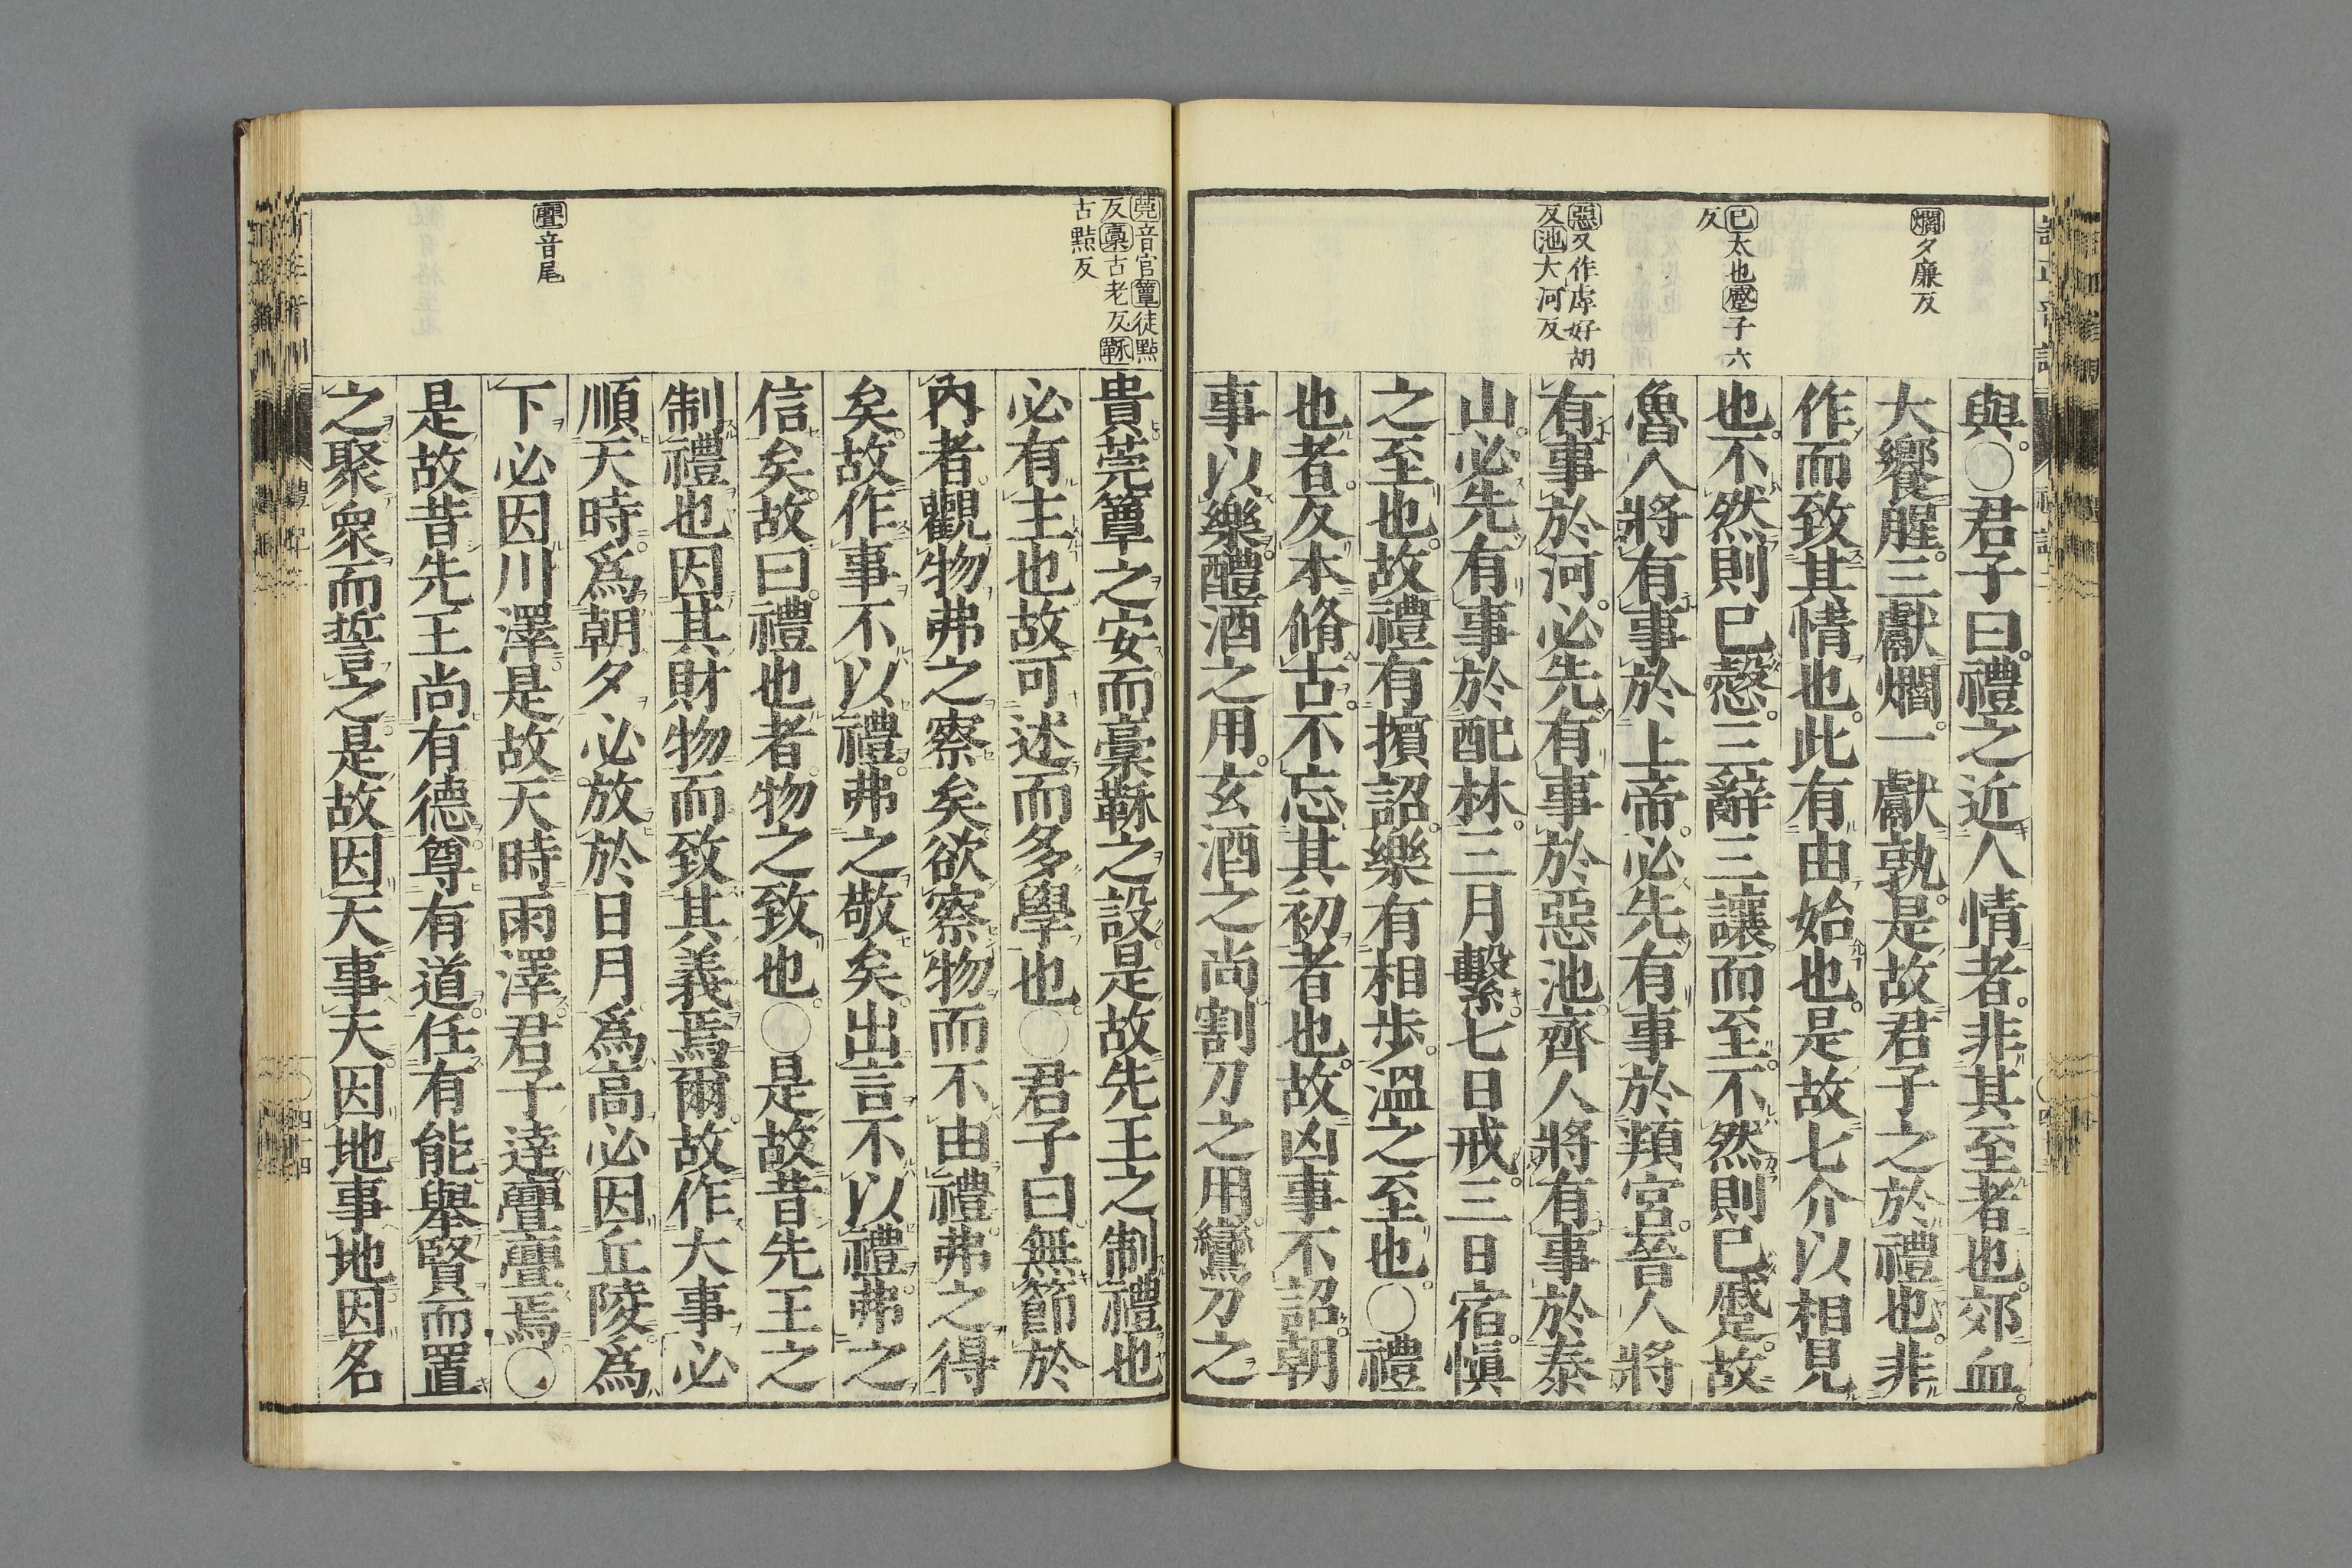 爓夕廉反
已太也蹙子六
反
惡又作虖好胡
反池大河反
與○君子曰禮之近人情者非其至者也郊血
大饗腥三獻爓一獻孰是故君子之於禮也非
作而致其情也此有由始也是故七介以相見
也不然則已慤三辭三讓而至不然則已蹙故
魯人將有事於上帝必先有事於頖宮晉人將
有事於河必先有事於惡池齊人將有事於泰
山必先有事於配林三月繫七日戒三日宿愼
之至也故禮有擯詔樂有相步溫之至也○禮
也者反本脩古不忘其初者也故凶事不詔朝
事以樂醴酒之用玄酒之尚割刀之用鸞刀之
莞音官簟徒點
反藁古老反鞂
古點反
亹音尾
貴莞簟之安而藁鞂之設是故先王之制禮也
必有主也故可述而多學也○君子曰無節於
內者觀物弗之察矣欲察物而不由禮弗之得
矣故作事不以禮弗之敬矣出言不以禮弗之
信矣故曰禮也者物之致也○是故昔先王之
制禮也因其財物而致其義焉爾故作大事必
順天時爲朝夕必放於日月爲高必因丘陵爲
下必因川澤是故天時雨澤君子達亹亹焉○
是故昔先王尚有德尊有道任有能舉賢而置
之聚衆而誓之是故因天事天因地事地因名
四十四